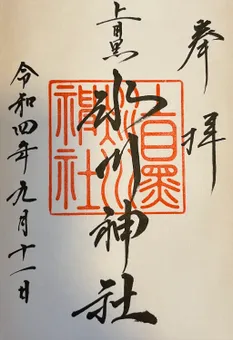 奉拝
上目黒
氷川神社
目黒
神社
令和四年九月十一日